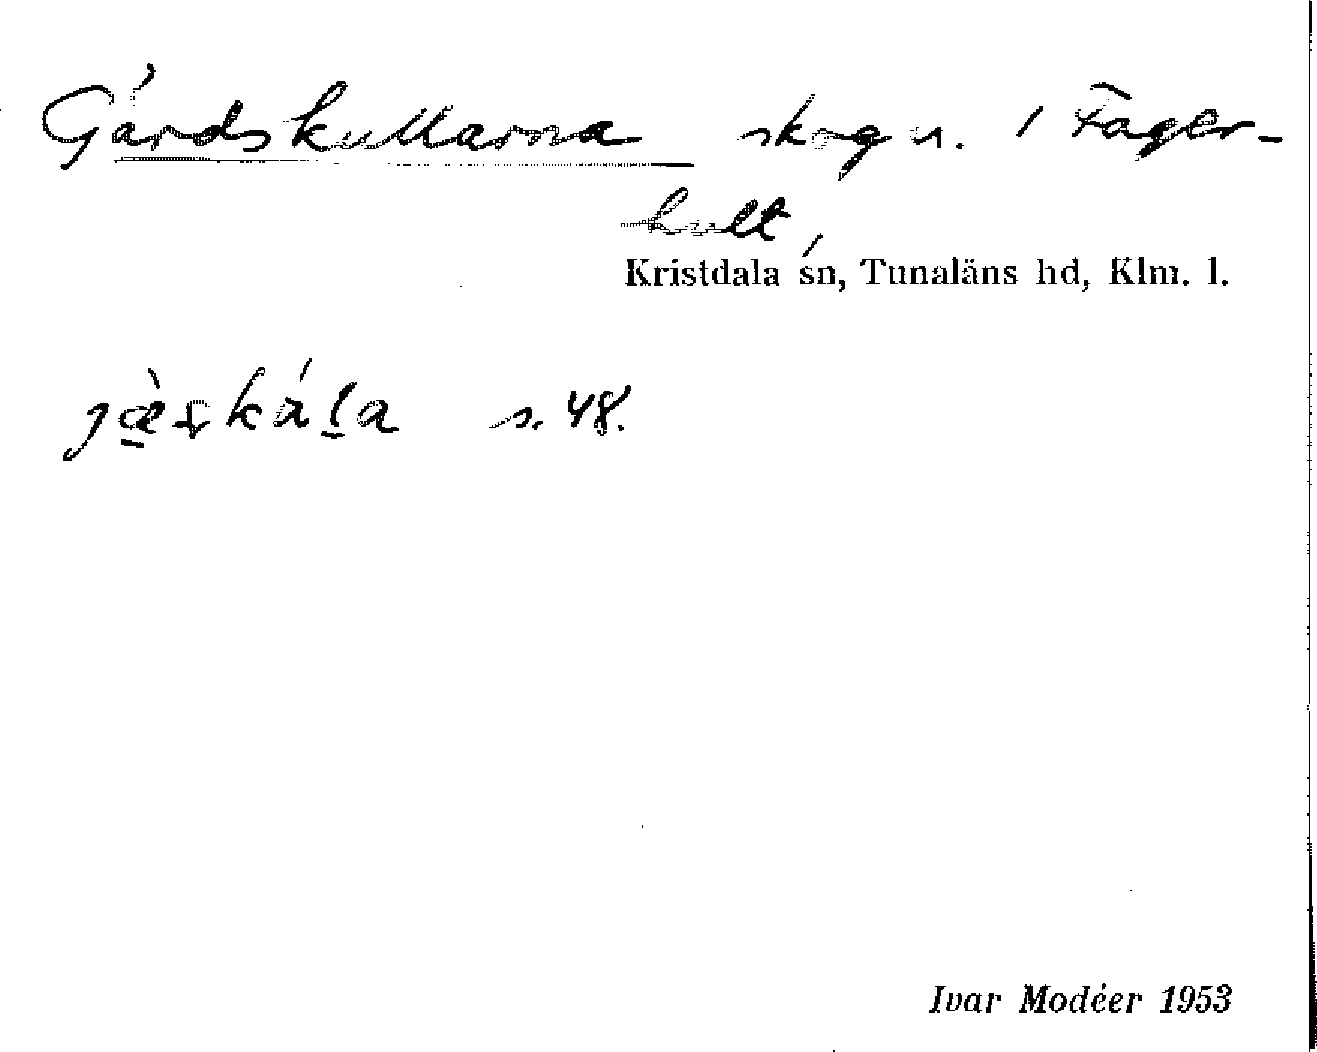 Gärdskullarna skogn. i Fager-
hult,
Kristdala sn, Tunaläns hd, Klm. l.
s. 48.
Ivar Modéer 1953